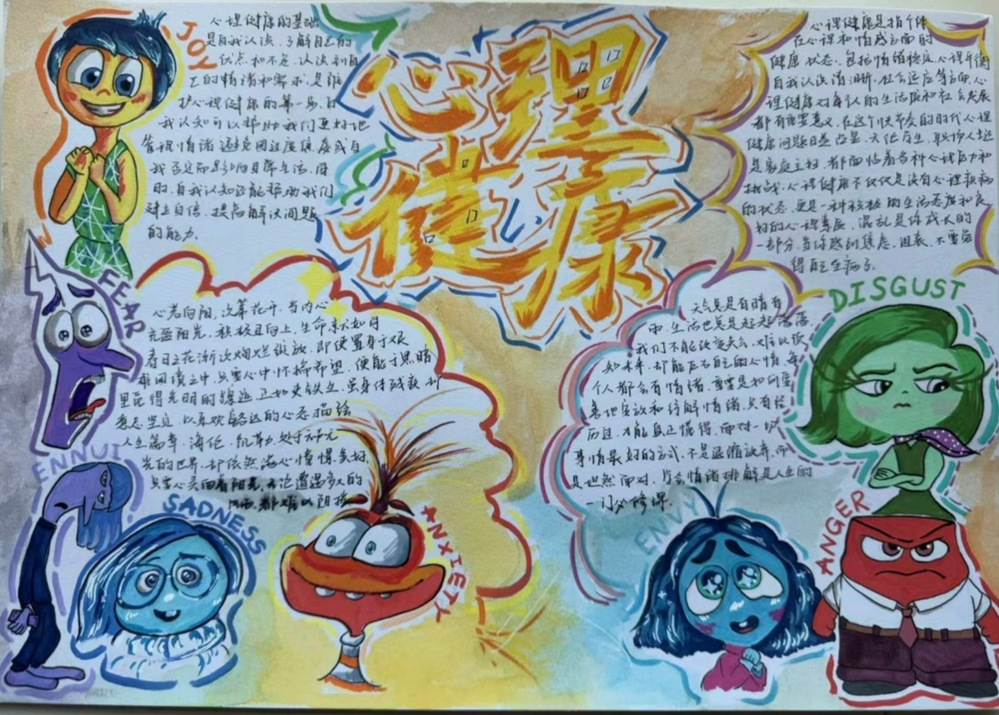 JOY
心理健康的基础
是自我认识、了解自己的
优点和不足、认识到自
己的情绪和需求、是维
护心理健康的第一步、自
我认知可以帮助我们更好地
管理情绪、避免因过度焦虑或自
我否定而影响日常生活、同
时、自我认知还能帮助我们
建立自信、提高解决问题
的能力.
心理
健康
心理健康是指个体
在心理和情感方面的
健康状态、包括情绪稳定、心理平衡
自我认识清晰、社会适应等方面、心
理健康对每个人的生活质和社会发展
都有重要意义、在这个快节奏的时代心理
健康问题日益凸显、无论学生、职场人士还
是家庭主妇、都面临着各种心理压力和
挑战、心理健康不仅仅是没有心理疾病
的状态、更是一种积极的生活态度和良
好的心理素质、混乱是你成长的
一部分、当你感到焦虑、沮丧、不要觉
得自己生病了.
FEAR
心若向阳、次第花开、当内心
充盈阳光、积极且向上、生命就如同
春日之花渐次绚烂绽放、即使置身于艰
难困境之中、只要心中怀揣希望、便能于黑暗
里觅得光明的踪迹、正如史铁生、虽身体残疾、
意志坚定、以乐观豁达的心态描绘
人生篇章、海伦·凯勒、处于无
光的世界、却依然满心憧憬美好、
只要心灵向着阳光、无论遭遇多大的
DISGUST
天气总是有晴有
雨、生活也总是起起落落、
我们不能改变天气、
未来、却能左右自己的心情、每
个人都会有情绪、重要是如何
释放和缓解情绪、只有经
历过、才能真正懂得、面对一切
事情最好的方式、不是退缩放弃、而
是坦然面对、学会情绪排解是人生的
一门必修课.
ENNUI
SADNESS
ANXIETY
ENVY
ANGER